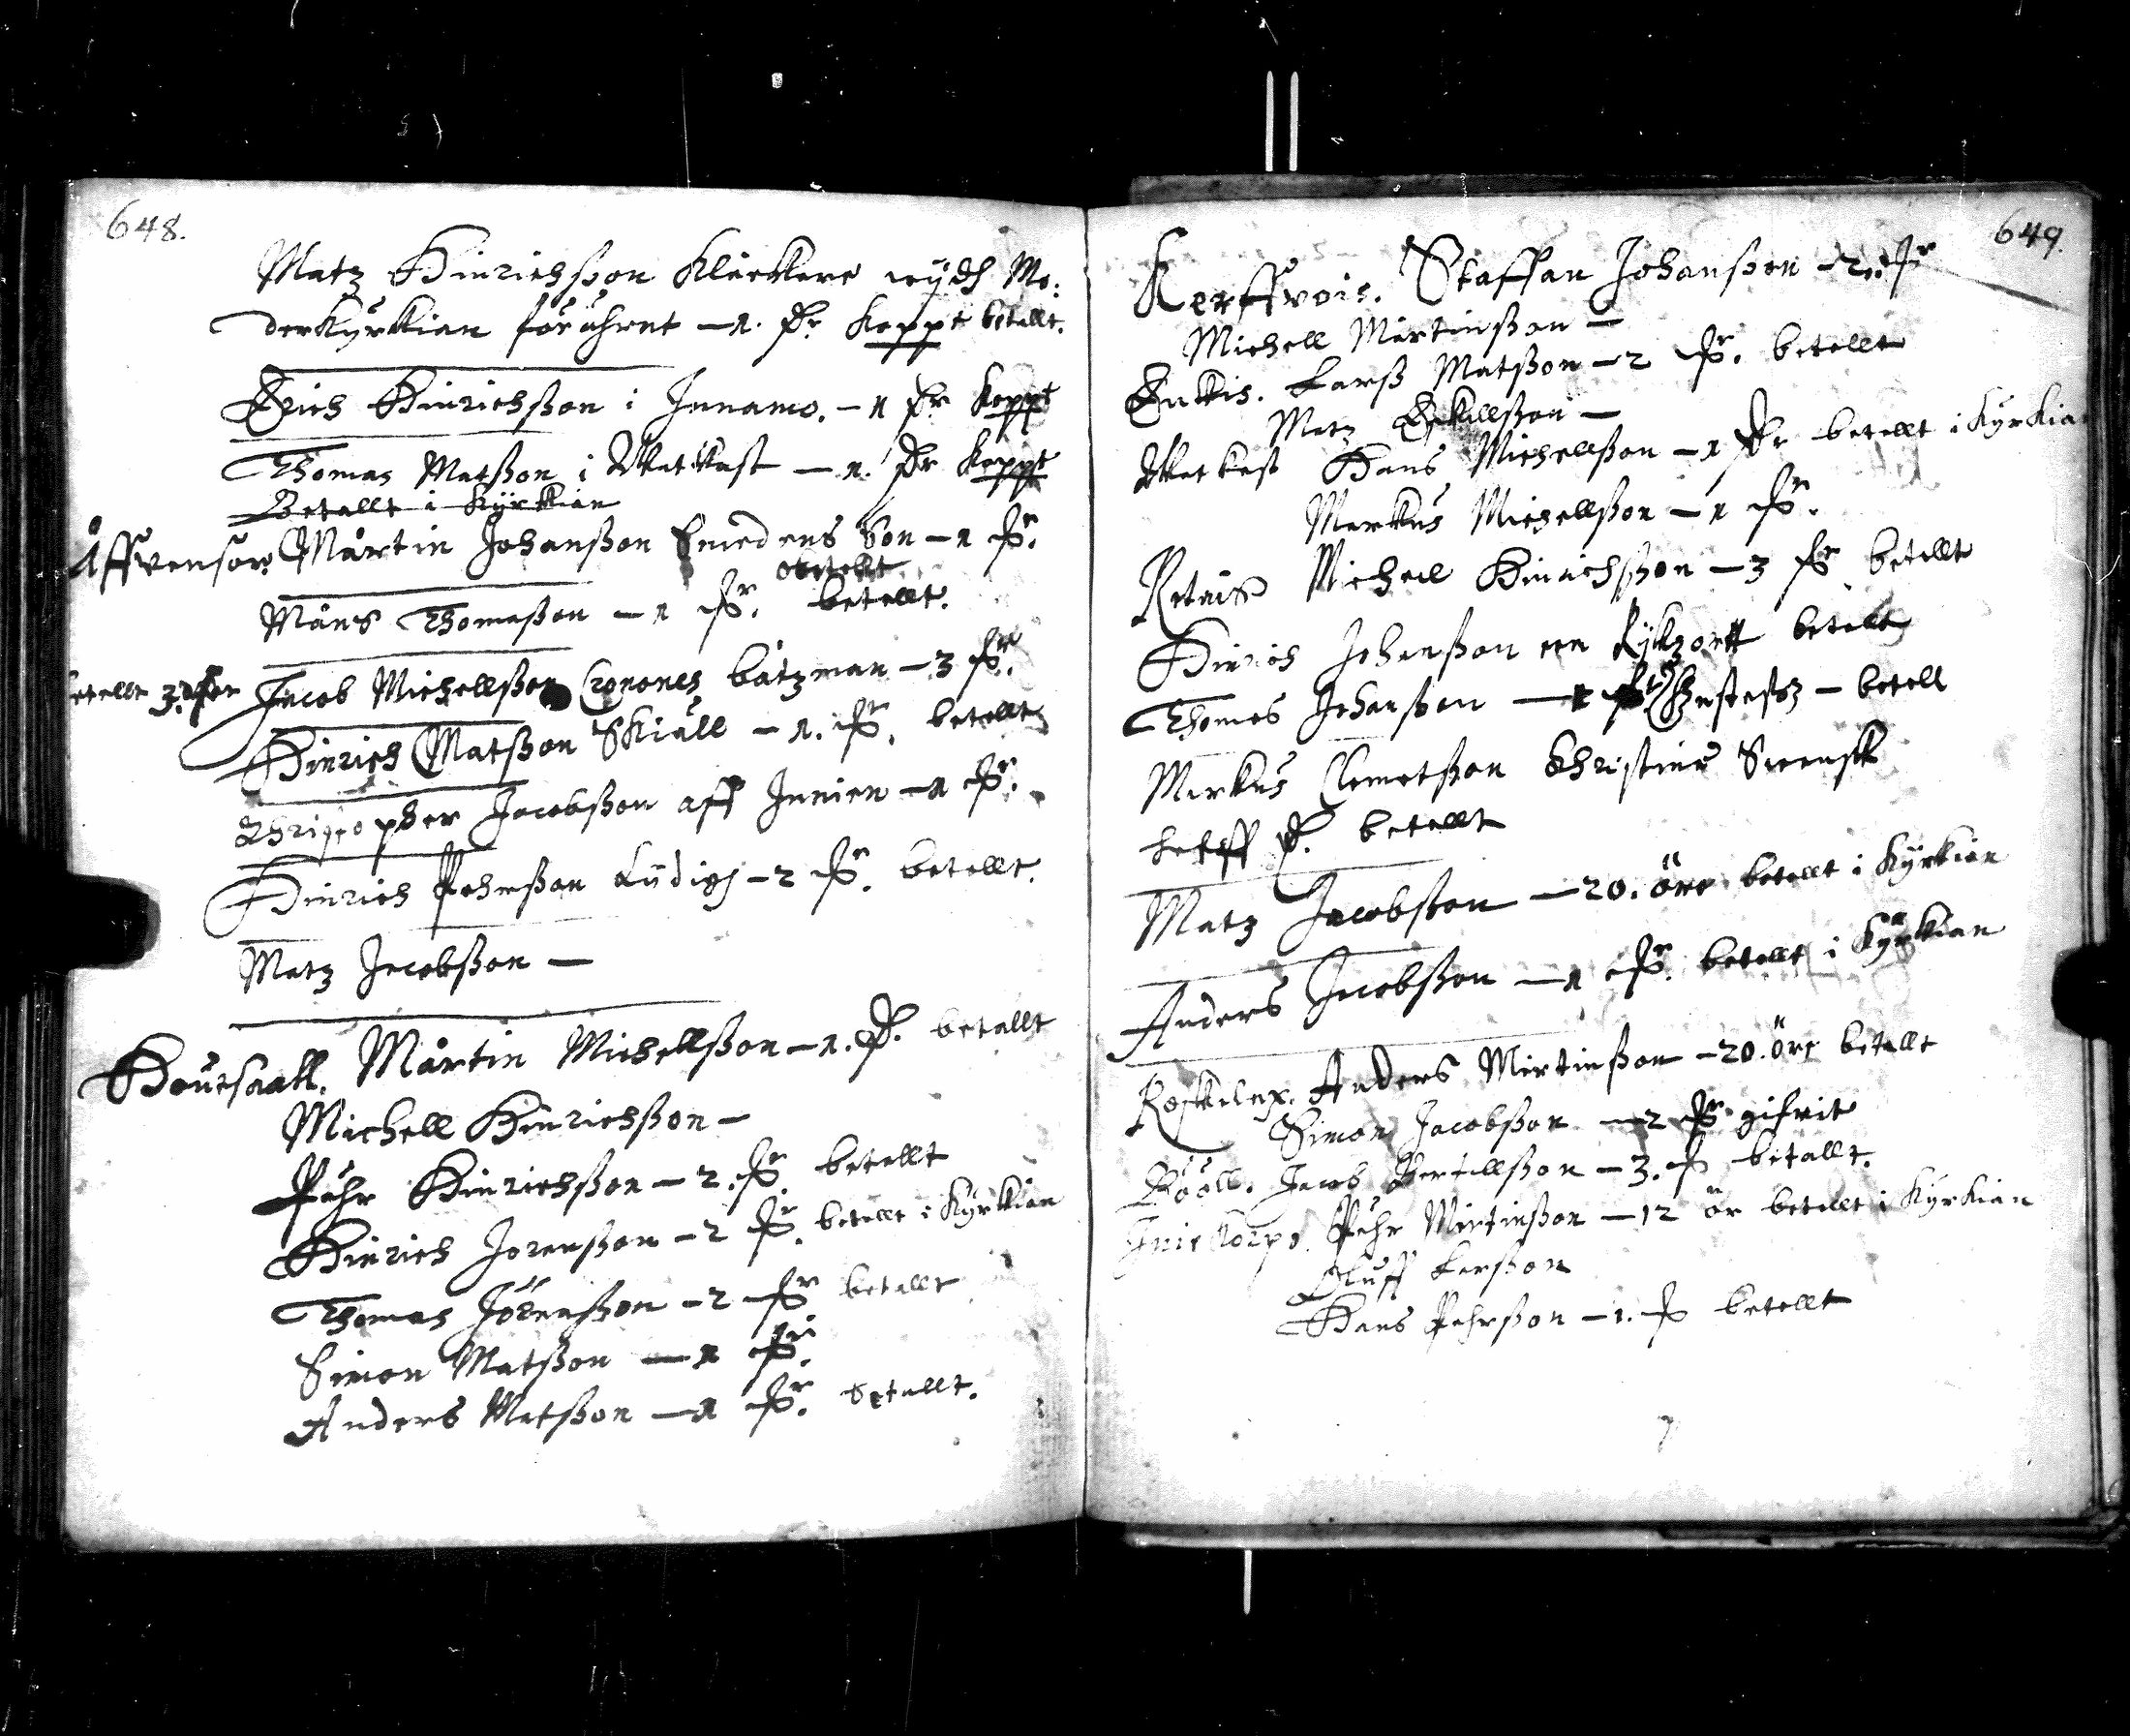 648.
Matz Hinrichsson Klåckare wydh Mo:
derkyrkian föråhrat —1. Dr Koppt betallt.
Erich Hinrichsson i Innamo. — 1 Dr Koppt
Thomas Matsson i Wattkast — 1. Dr Koppt
Betallt i Kyrkian
Åffwensor Mårtin Johansson Smedens Son — 1 dr.
obetallt
Måns Thomasson — 1 dr. betallt.
betallt 3. dler Jacob Michellsson Cronones båtzman — 3 dr.
Hinrich Matsson Skiäll — 1. dr. betallt
Christopher Jacobsson aff Jumien — 1 dr.
Hinrich Pehrsson Lydigh — 2 dr. betallt.
Matz Jacobsson —
Houtsaall. Mårtin Michellsson — 1. D. betallt
Michell Hinrichsson —
Pehr Hinrichsson — 2. dr betallt
Hinrich Jörensson — 2 dr. betallt i Kyrkian
Thomas Jörensson — 2 dr betallt
Simon Matsson — 1 dr.
Anders Matsson — 1 dr. betallt.
649.
Kerffvois. Staffan Johansson — 2. dr
Michell Mårtinsson —
Enckis. Larss Matsson — 2 dr. betallt
Matz Eskillsson —
Wattkast Hans Michellsson — 1 Dr betallt i Kyrkia
Markus Michellsson — 1 dr.
Retais Michell Hinrichsson — 3 dr betallt
Hinrich Johansson een Rykzortt betallt
Thomas Johansson — betall
Markus Clemetsson Christiers Swensk
D. betallt
Matz Jacobsson — 20. öre betallt i Kyrkian
Anders Jacobsson — 1 dr. betallt i Kyrkian
Roskelax. Anders Mårtinsson — 20. öre betallt
Simon Jacobsson — 2 dr gifwit
Jacob Bertillsson — 3. d betallt.
Pehr Mårtinsson — 12 ör betallt i Kyrkian
Oluff Larsson
Hans Pehrsson — 1. d betallt